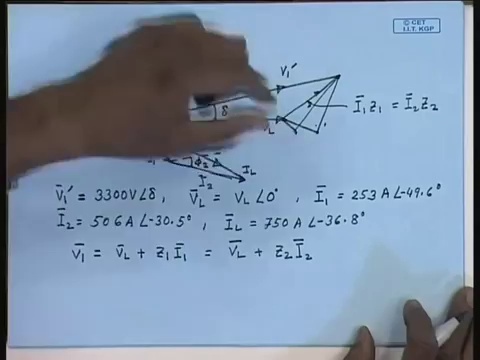 © CET
I.I.T. KGP
V₁′
δ
Ī₁Z₁ = Ī₂Z₂
L
I_L
φ₂
I₂
V̄₁′ = 3300V∠δ, V̄_L = V_L∠0°, Ī₁ = 253 A∠-49.6°
Ī₂ = 506 A∠-30.5°, Ī_L = 750 A∠-36.8°
V̄₁ = V̄_L + Z₁Ī₁ = V̄_L + Z₂Ī₂